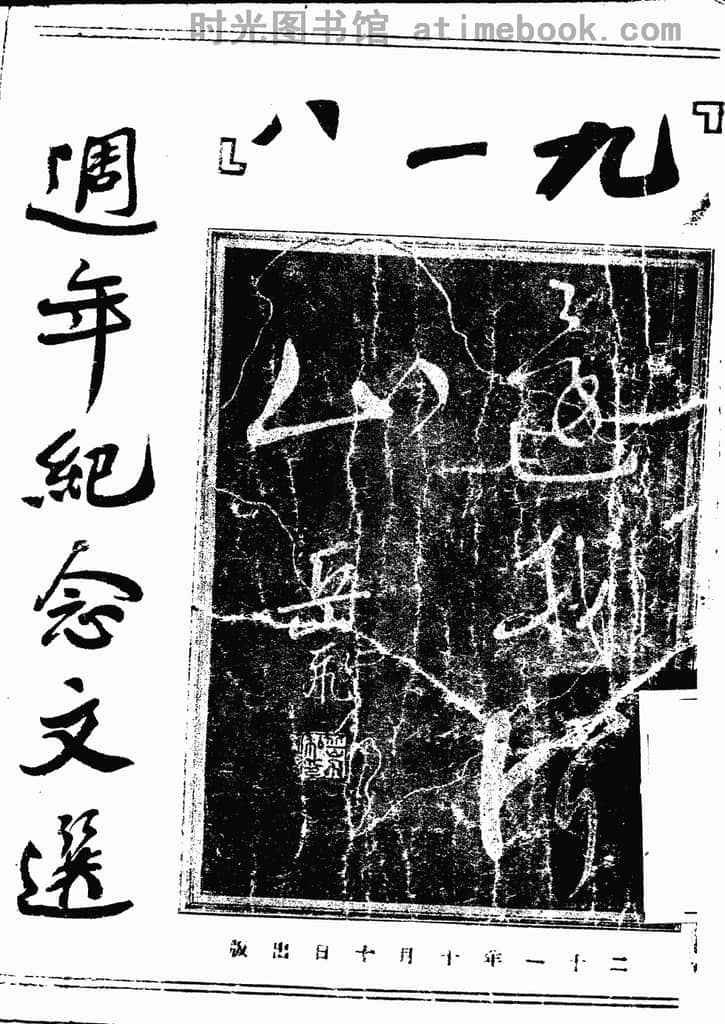 时光图书馆 atimebook.com
『九一八』
週年紀念文選
還我河
山
岳飛
二十一年十月十日出版